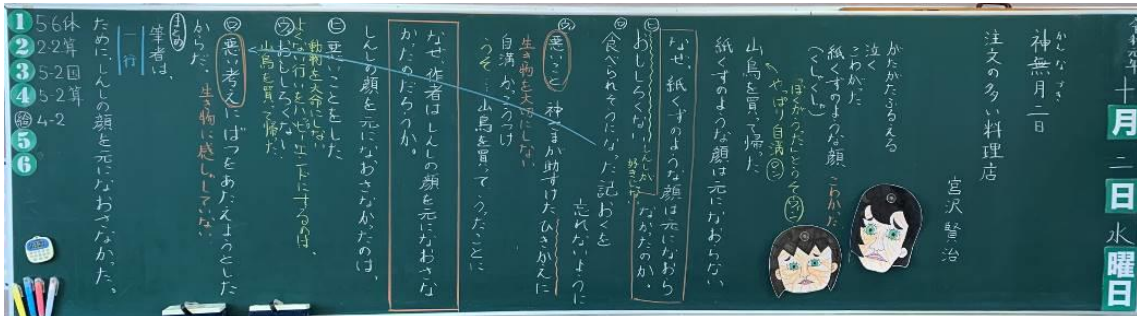 十月二日水曜日
かんなづき
神無月二日
注文の多い料理店
宮沢賢治
がたがたふるえる
泣く
こわかった
紙くずのような顔 こわかった
(くしゃくしゃ)
ぼくがうった とうそ
やっぱり自満
山鳥を買って帰った
紙くずのような顔は元になおらない
なぜ、紙くずのような顔は元になおら
なかったのか。
おもしろくない
食べられそうになった記おくを
忘れないように
悪いこと 神さまが助ずけたひきかえに
生き物を大切にしない
自満 かっこうつけ
うそ…山鳥を買って、うったことに
なぜ、作者はしんしの顔を元になおさな
かったのだろうか。
しんしの顔を元になおさなかったのは、
悪いことをした
動物を大命にしない
よくない行いをハッピーエンドにするのは、
おもしろくない
山鳥を買って帰った
悪い考えにばつをあたえようとした
からだ。
生き物に感しゃしてない
まとめ
筆者は、
一行
ために、しんしの顔を元になおさなかった。
1 5-6体
2 2-2算
3 5-2国
4 5-2算
給 4-2
5
6